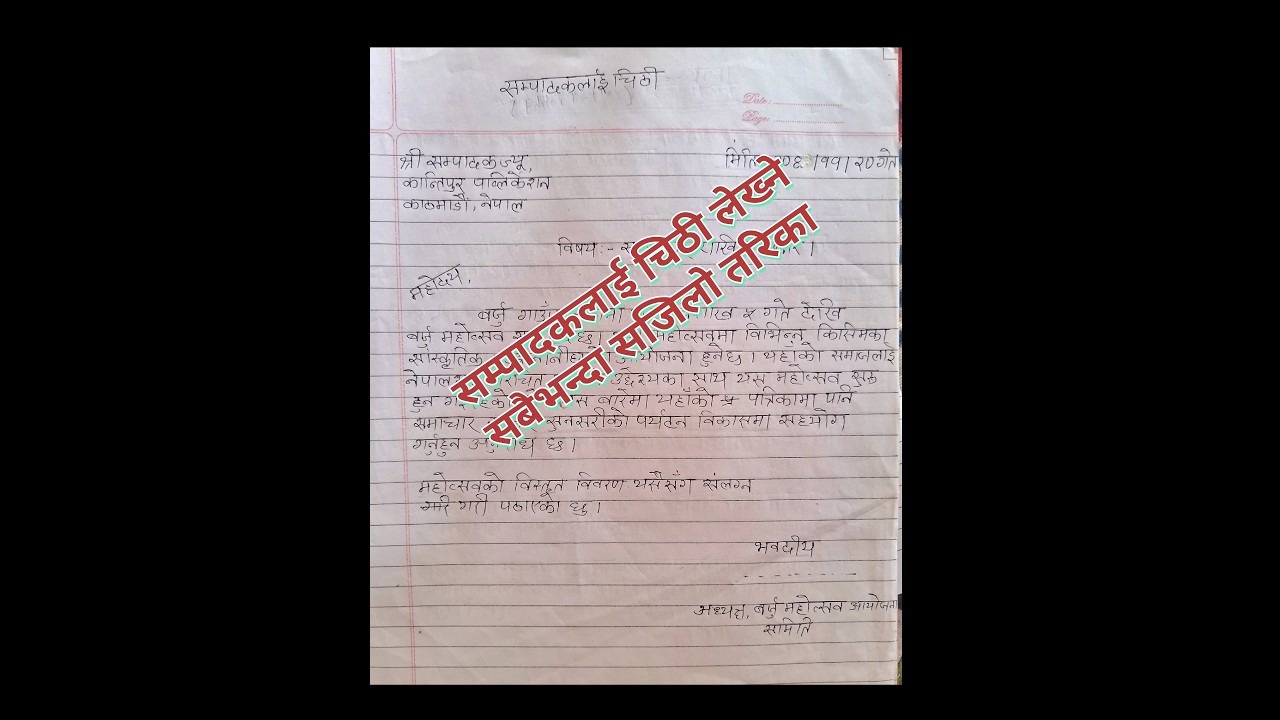 सम्पादकलाई चिठी
Date:
Page:
श्री सम्पादकज्यू,
मिति
।११।२०गते
कान्तिपुर पब्लिकेशन
काठमाडौं, नेपाल
विषय:-
महोदय,
बर्जु गाउँ ५ गते देखि
बर्जु महोत्सव छ। महोत्सवमा विभिन्न किसिमका
सांस्कृतिक हुनेछ। यहाँको समाजलाई
नेपाल उद्देश्यका साथ यस महोत्सव सुरु
हुन बारेमा यहाँको पत्रिकामा पनि
समाचार सुनसरीको पर्यटन विकासमा सहयोग
गर्नुहुन छ।
महोत्सवको विस्तृत विवरण यसैसँग संलग्न
गरी पठाएको छु।
भवदीय
अध्यक्ष, बर्जु महोत्सव आयोजना
समिति
सम्पादकलाई चिठी लेख्ने
सबैभन्दा सजिलो तरिका